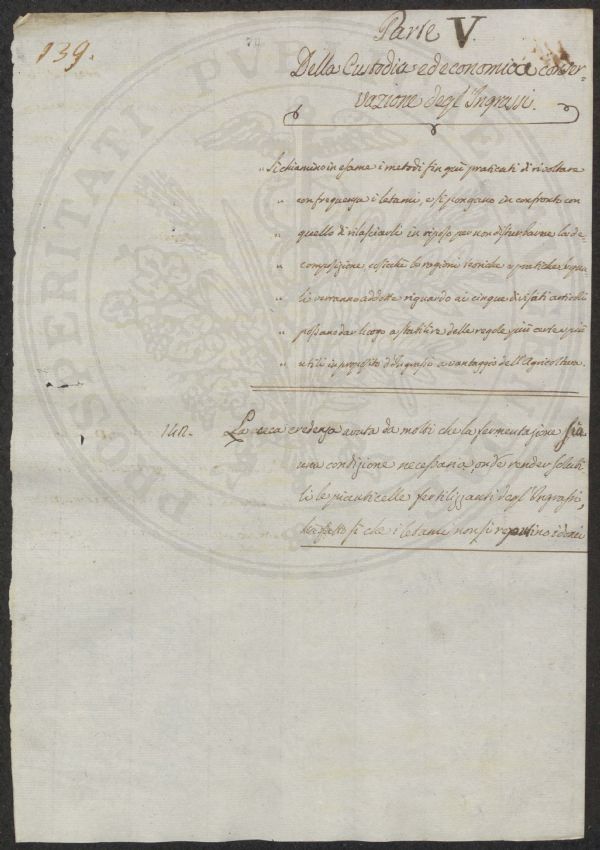 139.
Parte V.
Della Custodia ed economica conser-
vazione degl'Ingrassi.
„ Si chiamino in esame i metodi fin quì praticati di rivoltare
„ con frequenza i letami, e si pongano in confronto con
„ quello di rilasciarli in riposo per non disturbarne la de-
„ composizione, cosicchè le ragioni teoriche e pratiche le qua-
„ li verranno addotte riguardo ai cinque divisati articoli
„ possano dar luogo a stabilire delle regole più certe e più
„ utili in proposito d'Ingrassi a vantaggio dell'Agricoltura.
La cieca credenza avuta da molti che la fermentazione sia
una condizione necessaria, onde render solubi
li le particelle fertilizzanti degl'Ingrassi,
ha fatto sì che i letami non si reputino idonei
PROSPERITATI PUBLICAE